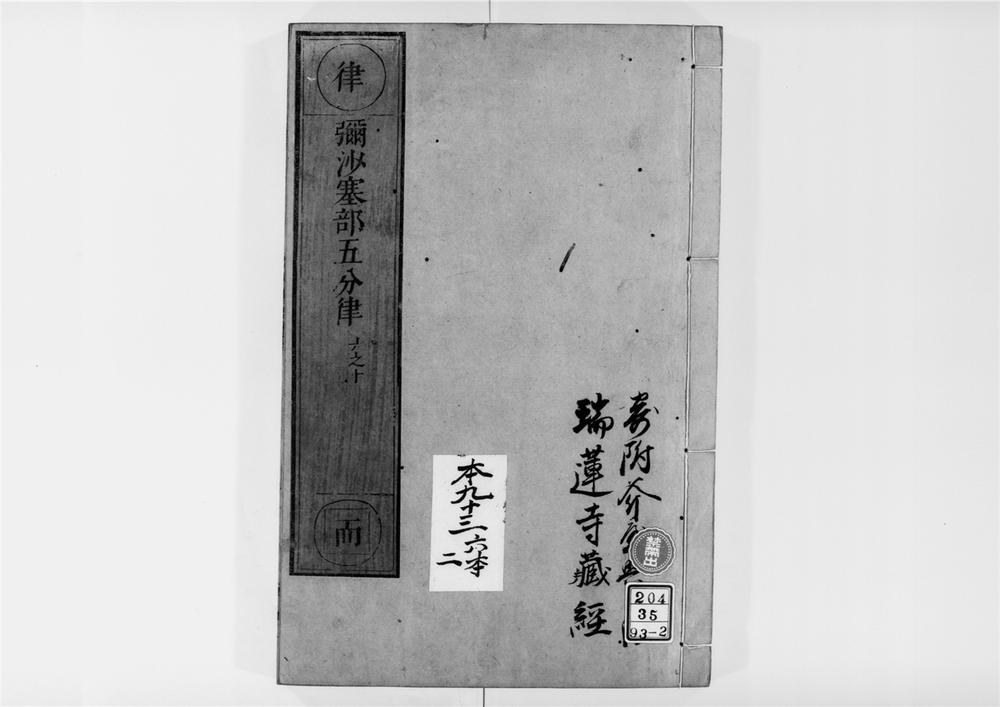 律
彌沙塞部五分律
之十
而
寄附
瑞蓮寺藏經
本九十三
六本
二
禁帶出
204
35
93-2